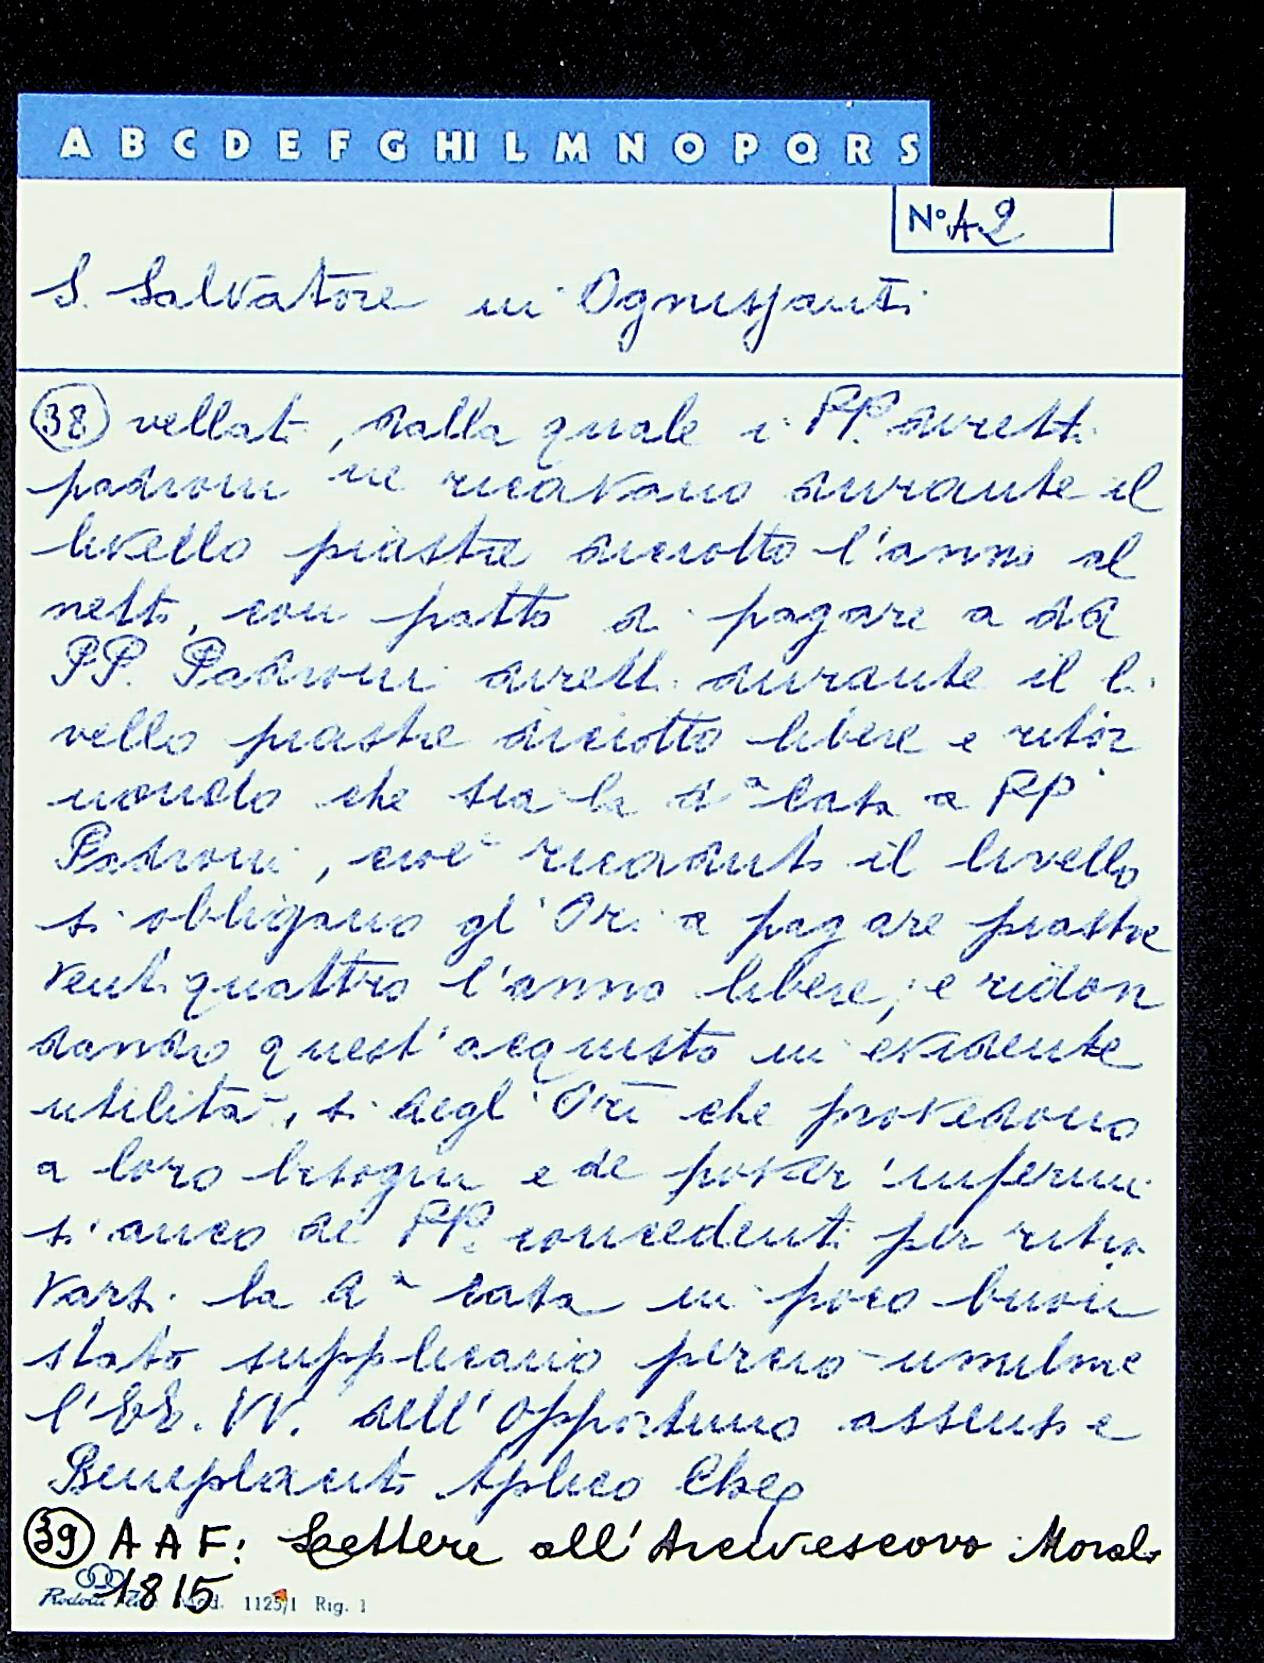 A B C D E F G HI L M N O P Q R S
N° A2
S. Salvatore in Ognissanti
38 vellati, dalla quale i PP. diretti
padroni ne ricavano durante il
livello piastre diciotto l'anno al
netto, con patto di pagare a dd
PP. Padroni diretti durante il li
vello piastre diciotto libere e ritor
nando che sia la da Casa a PP
Padroni, cioè ricaduto il livello
si obbligano gl'Ori a pagare piastre
ventiquattro l'anno libere; e ridon
dando quest'acquisto in evidente
utilità, sì degl'Ori che provedono
a loro bisogni e de poveri infermi
sì anco de PP. concedenti per ritro
varsi la da casa in poco buon
stato supplicano perciò umilme
l'EE. VV. dell'opportuno assenso e
Beneplacito Aplico Che
39 A A F: Lettere all'Arcivescovo Morali
1815
Mod. 1125/1 Rig. 1